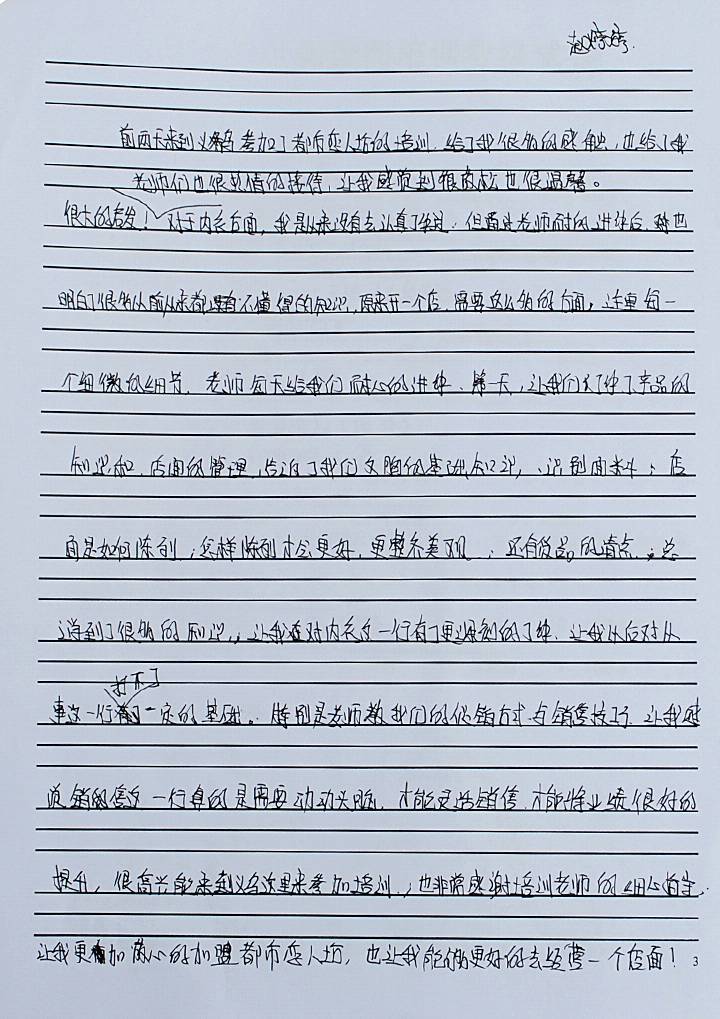 赵婷婷.
前两天来到义乌参加了都市恋人坊的培训.给了我很多的感触,也给了我
老师们也很热情的接待,让我感觉到很轻松也很温馨。
很大的启发!对于内衣方面,我是从来没有去认真了解过.但通过老师耐心的讲解后.我也
明白了很多从前从来都没有不懂得的知识,原来开一个店.需要这么多的方面,注重每一
个细微的细节.老师每天给我们耐心的讲解.第一天,让我们了解了产品的
知识和.店面的管理,告诉了我们文胸的基础知识,、识别面料;店
面是如何陈列;怎样陈列才会更好,更整齐美观;还有货品的清点.;总
之得到了很多的知识,;让我在对内衣这一行有了更深刻的了解.让我以后对从
打下了
事这一行一定的基础。特别是老师教我们的促销方式与销售技巧.让我感
觉销售这一行真的是需要动动头脑.才能灵活销售.才能将业绩很好的
提升,很高兴能来到义乌这里来参加培训.;也非常感谢培训老师的细心指导.
让我更加放心的加盟都市恋人坊,也让我能够更好的去经营一个店面!
3